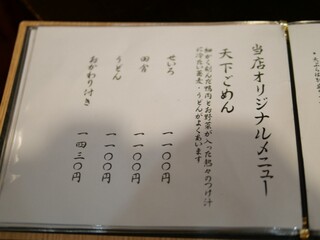 当店オリジナルメニュー
天下ごめん
細かく刻んだ鴨肉とお野菜が入った熱々のつけ汁
に冷たい蕎麦・うどんがよくあいます
せいろ 一一〇〇円
田舎 一一〇〇円
うどん 一一〇〇円
おかわり付き 一四三〇円